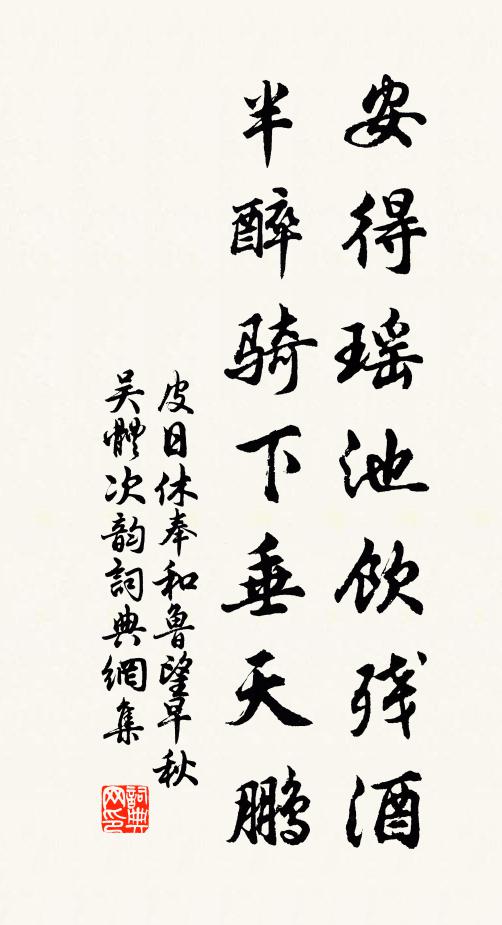 安得瑶池饮残酒
半醉骑下垂天鹏
皮日休奉和鲁望早秋
吴體次韵詞典網集
詞典
网印